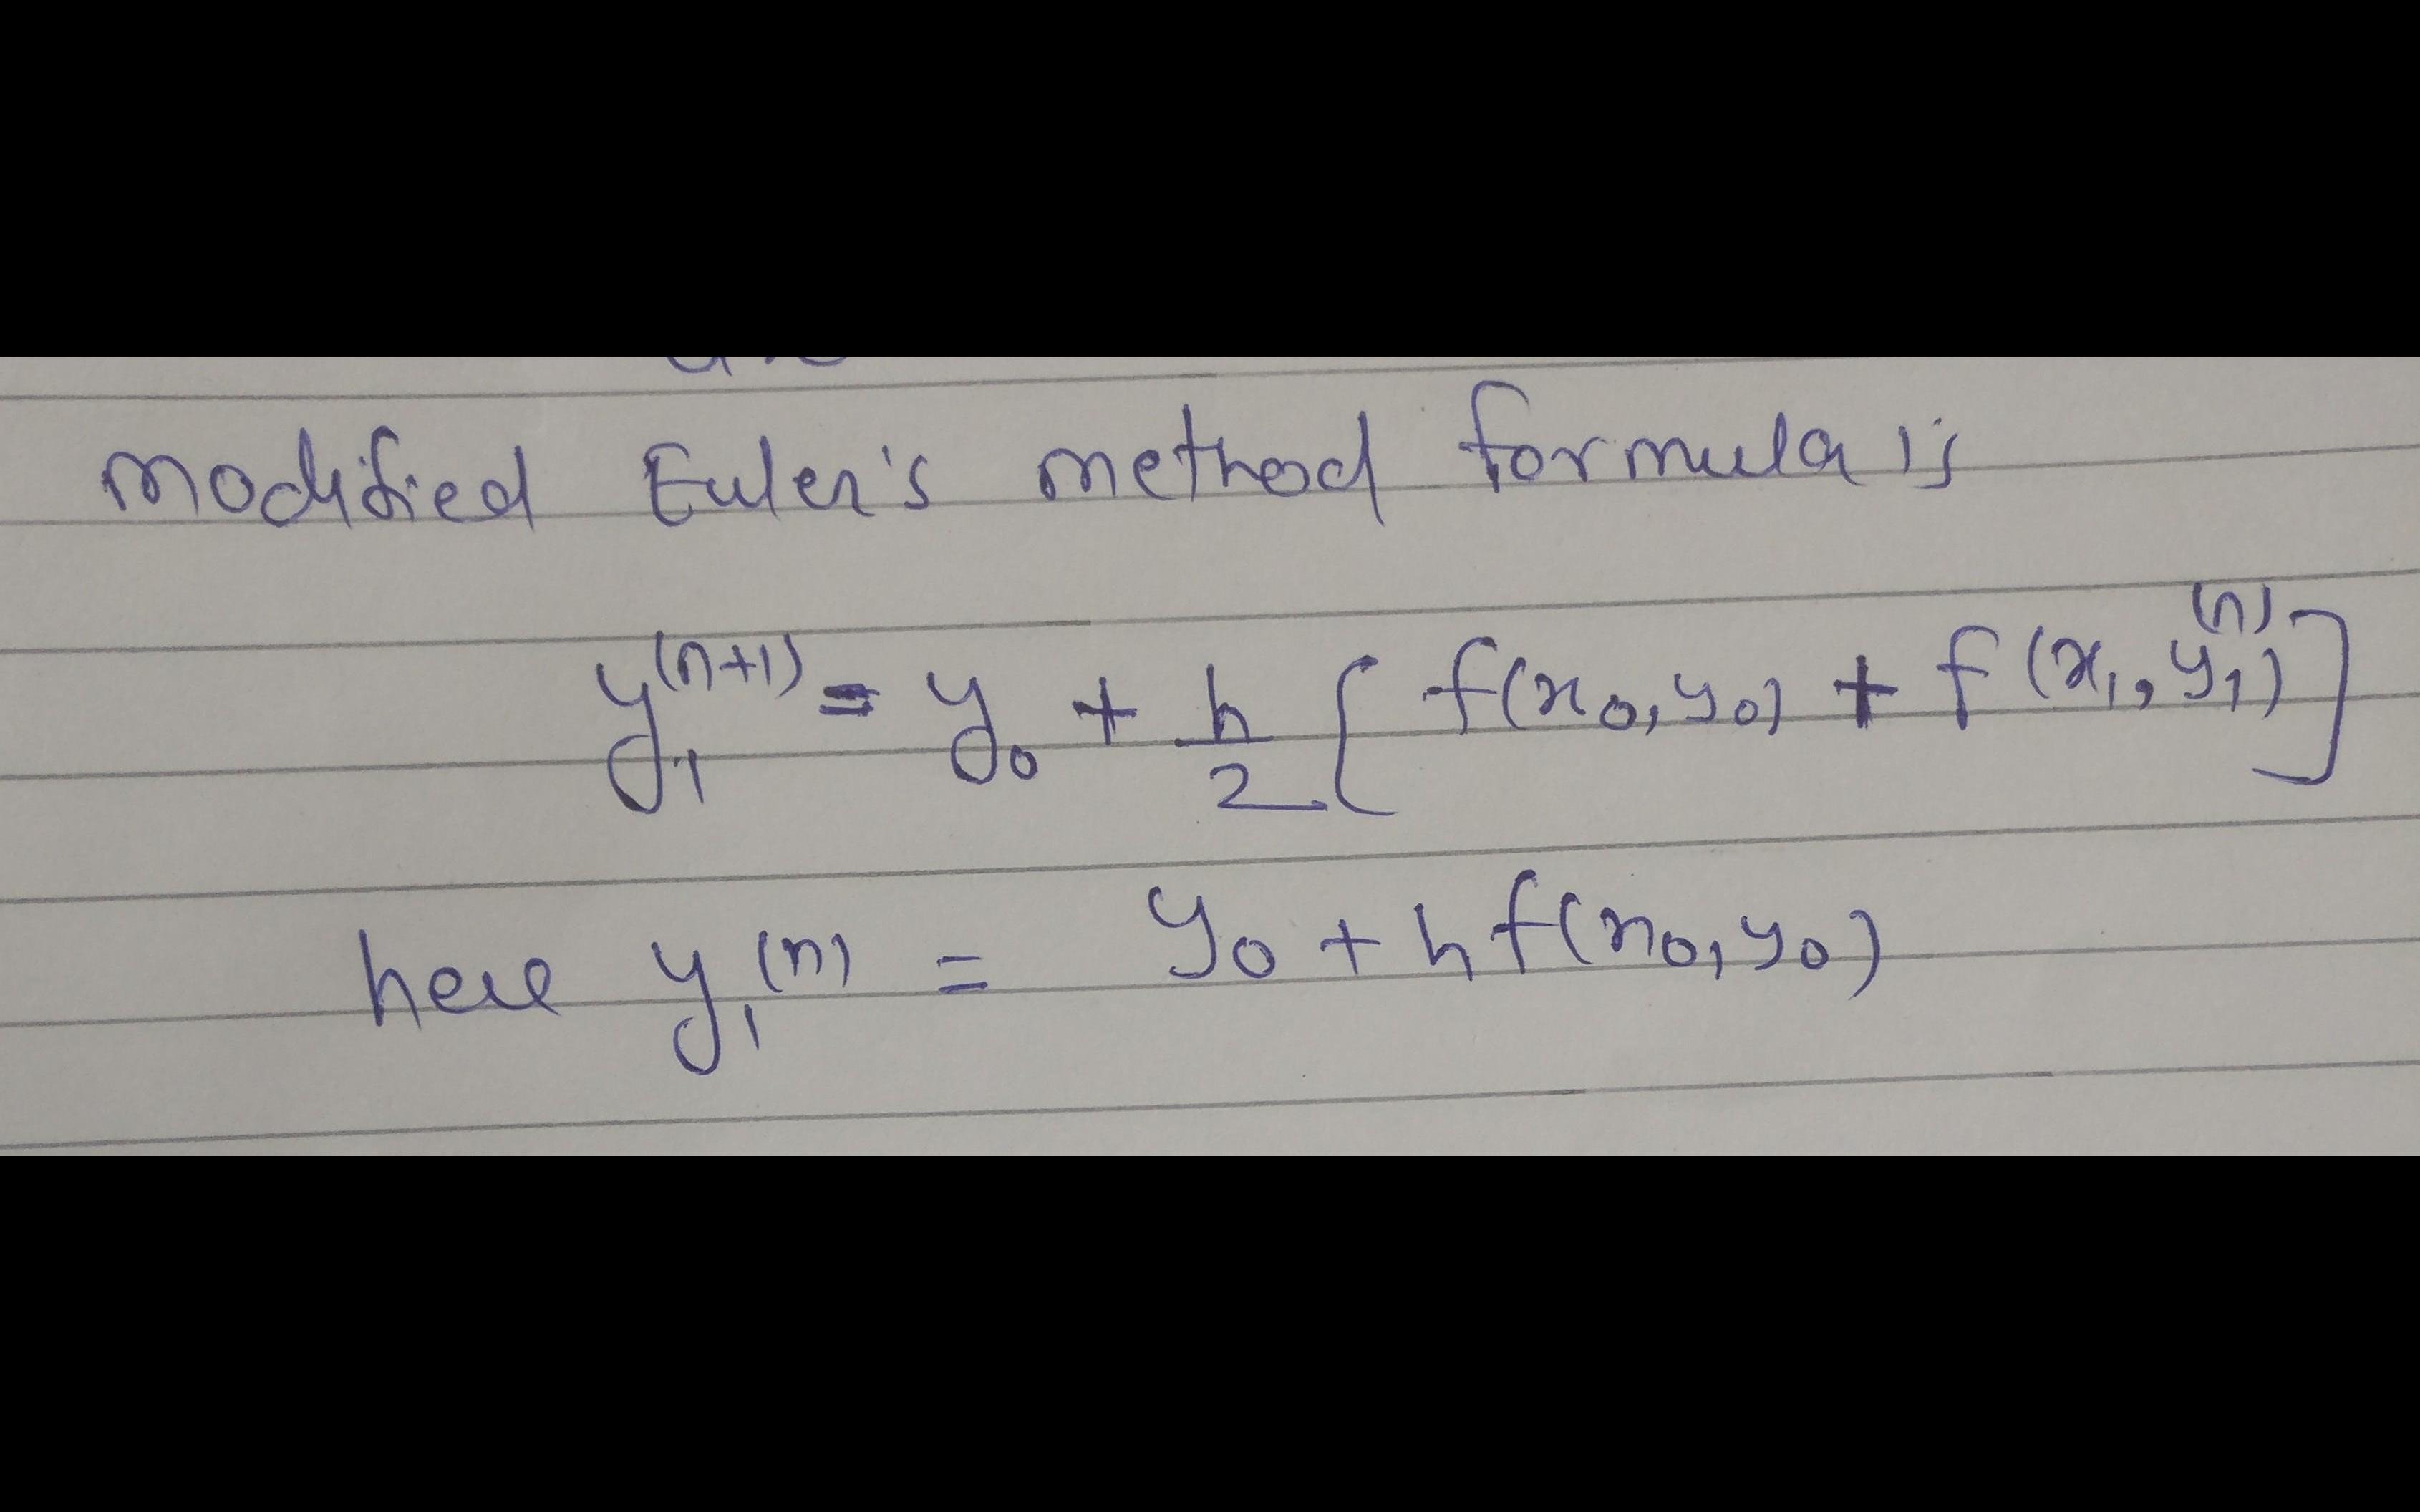 modified Euler's method formula is
y₁⁽ⁿ⁺¹⁾ = y₀ + h/2 [ f(x₀,y₀) + f(x₁,y₁⁽ⁿ⁾) ]
here y₁⁽ⁿ⁾ = y₀ + hf(x₀,y₀)